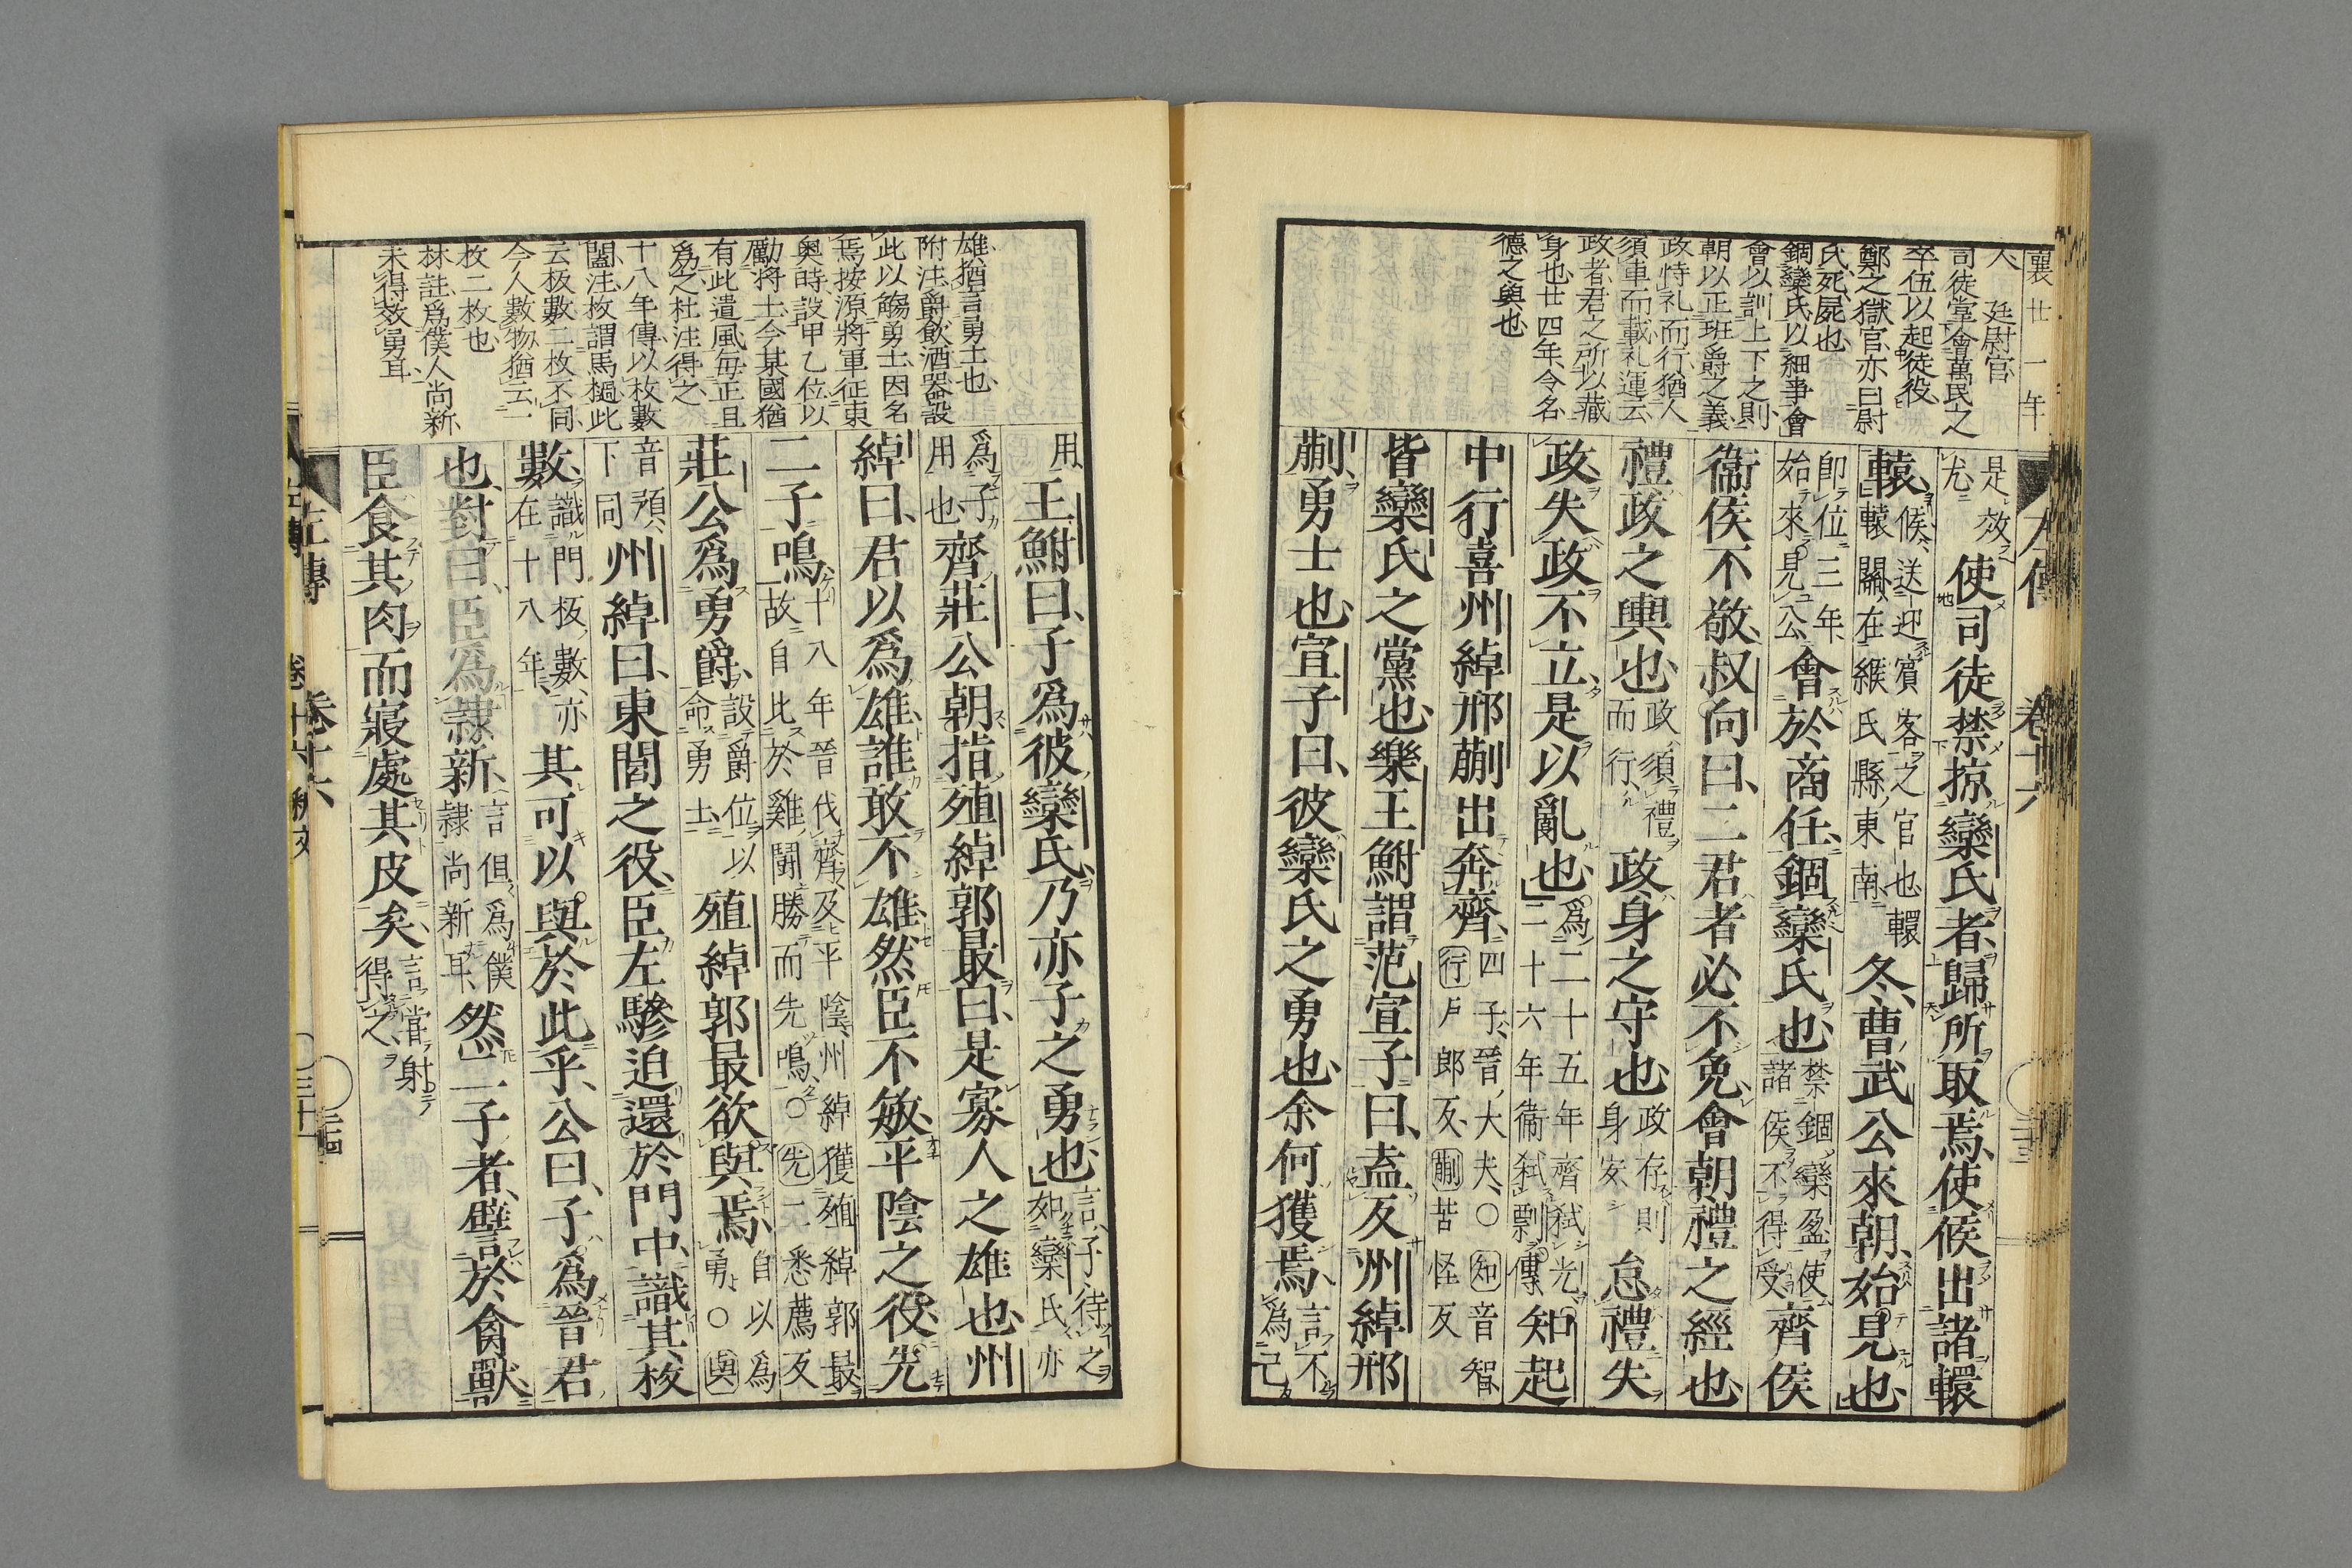 襄廿一年
人、廷尉官
司徒掌會萬民之
卒伍以起徒役、
鄭之獄官、亦曰尉
氏、死、屍也、
錮欒氏、以細事會
會以訓上下之則、
朝以正班爵之義、
政恃礼而行、猶人
須車而載、礼運云、
政者、君之所以藏
身也、廿四年、令名、
德之輿也、
左傳 卷十六 三十三
是效
尤、使司徒禁掠欒氏者、歸所取焉、使候出諸轘
轅、候、送迎賓客之官也、轘
轅關、在緱氏縣東南、冬、曹武公來朝、始見也、
即位三年、
始來見公、會於商任、錮欒氏也、禁錮欒盈、使
諸侯不得受、齊侯
衞侯不敬、叔向曰、二君者必不免、會朝禮之經也、
禮政之輿也、政須禮
而行、政身之守也、政存則
身安、怠禮失
政、失政不立、是以亂也、爲二十五年齊弑光、
二十六年衞弑剽傳、知起
中行喜州綽邢蒯出奔齊、四子、晉大夫、〇知音智、
行戸郎反、蒯苦怪反
皆欒氏之黨也、樂王鮒謂范宣子曰、盍反州綽邢
蒯、勇士也、宣子曰、彼欒氏之勇也、余何獲焉、言不
爲己
用、王鮒曰、子爲彼欒氏、乃亦子之勇也、言子待之
如欒氏、亦
爲子
用也、齊莊公朝、指殖綽郭最曰、是寡人之雄也、州
綽曰、君以爲雄、誰敢不雄、然臣不敏、平陰之役、先
二子鳴、十八年晉伐齊、及平陰、州綽獲殖綽郭最、
故自此於雞鬪勝而先鳴、〇先二悉薦反
莊公爲勇爵、設爵位以
命勇士、殖綽郭最欲與焉、自以爲
勇、〇與
音預、
下同州綽曰、東閭之役、臣左驂迫還於門中、識其枚
數、識門板數、亦
在十八年、其可以與於此乎、公曰、子爲晉君
也、對曰、臣爲隷新、言但爲僕
隷尚新耳、然二子者、譬於禽獸、
臣食其肉而寢處其皮矣、言嘗射
得之、
雄、猶言勇士也、
附注、爵飲酒器、設
此以觴勇士、因名
焉、按源將軍征東
奥時、設甲乙位以
勵將士、今某國猶
有此遺風、毎正旦
爲之、杜注得之、
十八年傳、以枚數
闔、注、枚謂馬檛、此
云板數、二枚不同、
今人數物、猶云一
枚二枚也、
林註、爲僕人尚新、
未得效勇耳、
左傳 卷十六 三十四